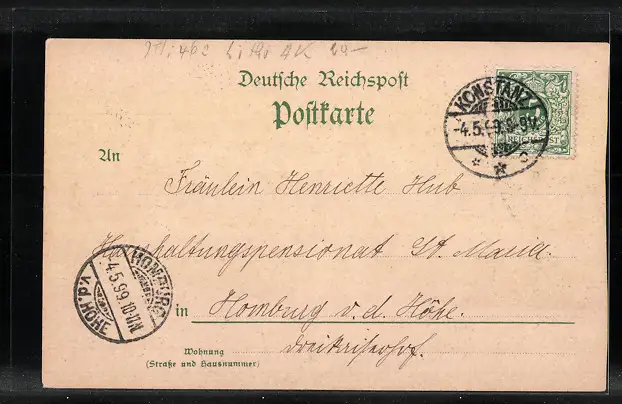 Deutsche Reichspost
Postkarte
KONSTANZ
-4.5.99.8-9N.
* * c
An
Fräulein Henriette Hub
Haushaltungspensionat St. Maria.
HOMBURG
-4.5.99.10-11N.
v.d. HÖHE
in Homburg v. d. Höhe.
Wohnung
(Straße und Hausnummer)